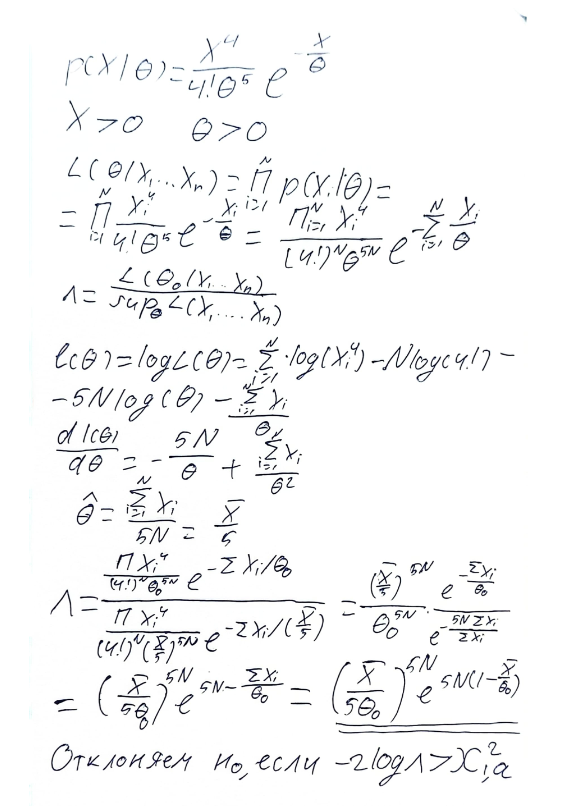 p(X|θ) = X^4/(4!θ^5) e^(-X/θ)
X > 0 θ > 0
L(θ|X₁...Xₙ) = ∏_{i=1}^N p(X_i|θ) =
= ∏_{i=1}^N X_i^4/(4!θ^5) e^(-X_i/θ) = (∏_{i=1}^N X_i^4)/((4!)^N θ^(5N)) e^(-∑_{i=1}^N X_i/θ)
Λ = L(θ₀|X₁...Xₙ)/(sup_θ L(X₁,...Xₙ))
l(θ) = log L(θ) = ∑_{i=1}^N · log(X_i^4) - N log(4!) -
- 5N log(θ) - (∑_{i=1}^N X_i)/θ
dl(θ)/dθ = - 5N/θ + (∑_{i=1}^N X_i)/θ²
θ̂ = (∑_{i=1}^N X_i)/(5N) = X̄/5
Λ = (∏X_i^4/((4!)^N θ₀^(5N)) e^(-∑X_i/θ₀))/(∏X_i^4/((4!)^N (X̄/5)^(5N)) e^(-∑X_i/(X̄/5))) = (X̄/5)^(5N)/θ₀^(5N) · e^(-∑X_i/θ₀)/e^(-5N∑X_i/∑X_i)
= (X̄/(5θ₀))^(5N) e^(5N - ∑X_i/θ₀) = (X̄/(5θ₀))^(5N) e^(5N(1 - X̄/θ₀))
Отклоняем H₀, если -2logΛ > X²₁,a